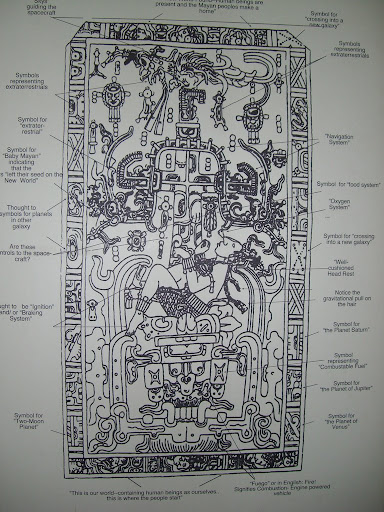 guiding the
spacecraft
Human beings are
present and the Mayan peoples make a
home"
Symbol for
"crossing into a
new galaxy"
Symbols
representing
extraterrestrials
Symbols
representing
extraterrestrials
Symbol for
"extrater-
restrial"
Symbol for
"Baby Mayan"
indicating
that the
"left their seed on the
New World"
Thought to
symbols for planets
in other
galaxy
Are these
to the space-
craft?
be "Ignition"
or "Braking
System"
Symbol for
"Two-Moon
Planet"
"Navigation
System"
Symbol for "food system"
"Oxygen
System"
Symbol for "crossing
into a new galaxy"
"Well-
cushioned
Head Rest
Notice the
gravitational pull on
the hair
Symbol for
"the Planet Saturn"
Symbol
representing
"Combustable Fuel"
Symbol for
"the Planet of Jupiter"
Symbol for
"the Planet of
Venus"
"This is our world--containing human beings as ourselves...
this is where the people start"
"Fuego" or in English- Fire!
Signifies Combustion- Engine powered
vehicle